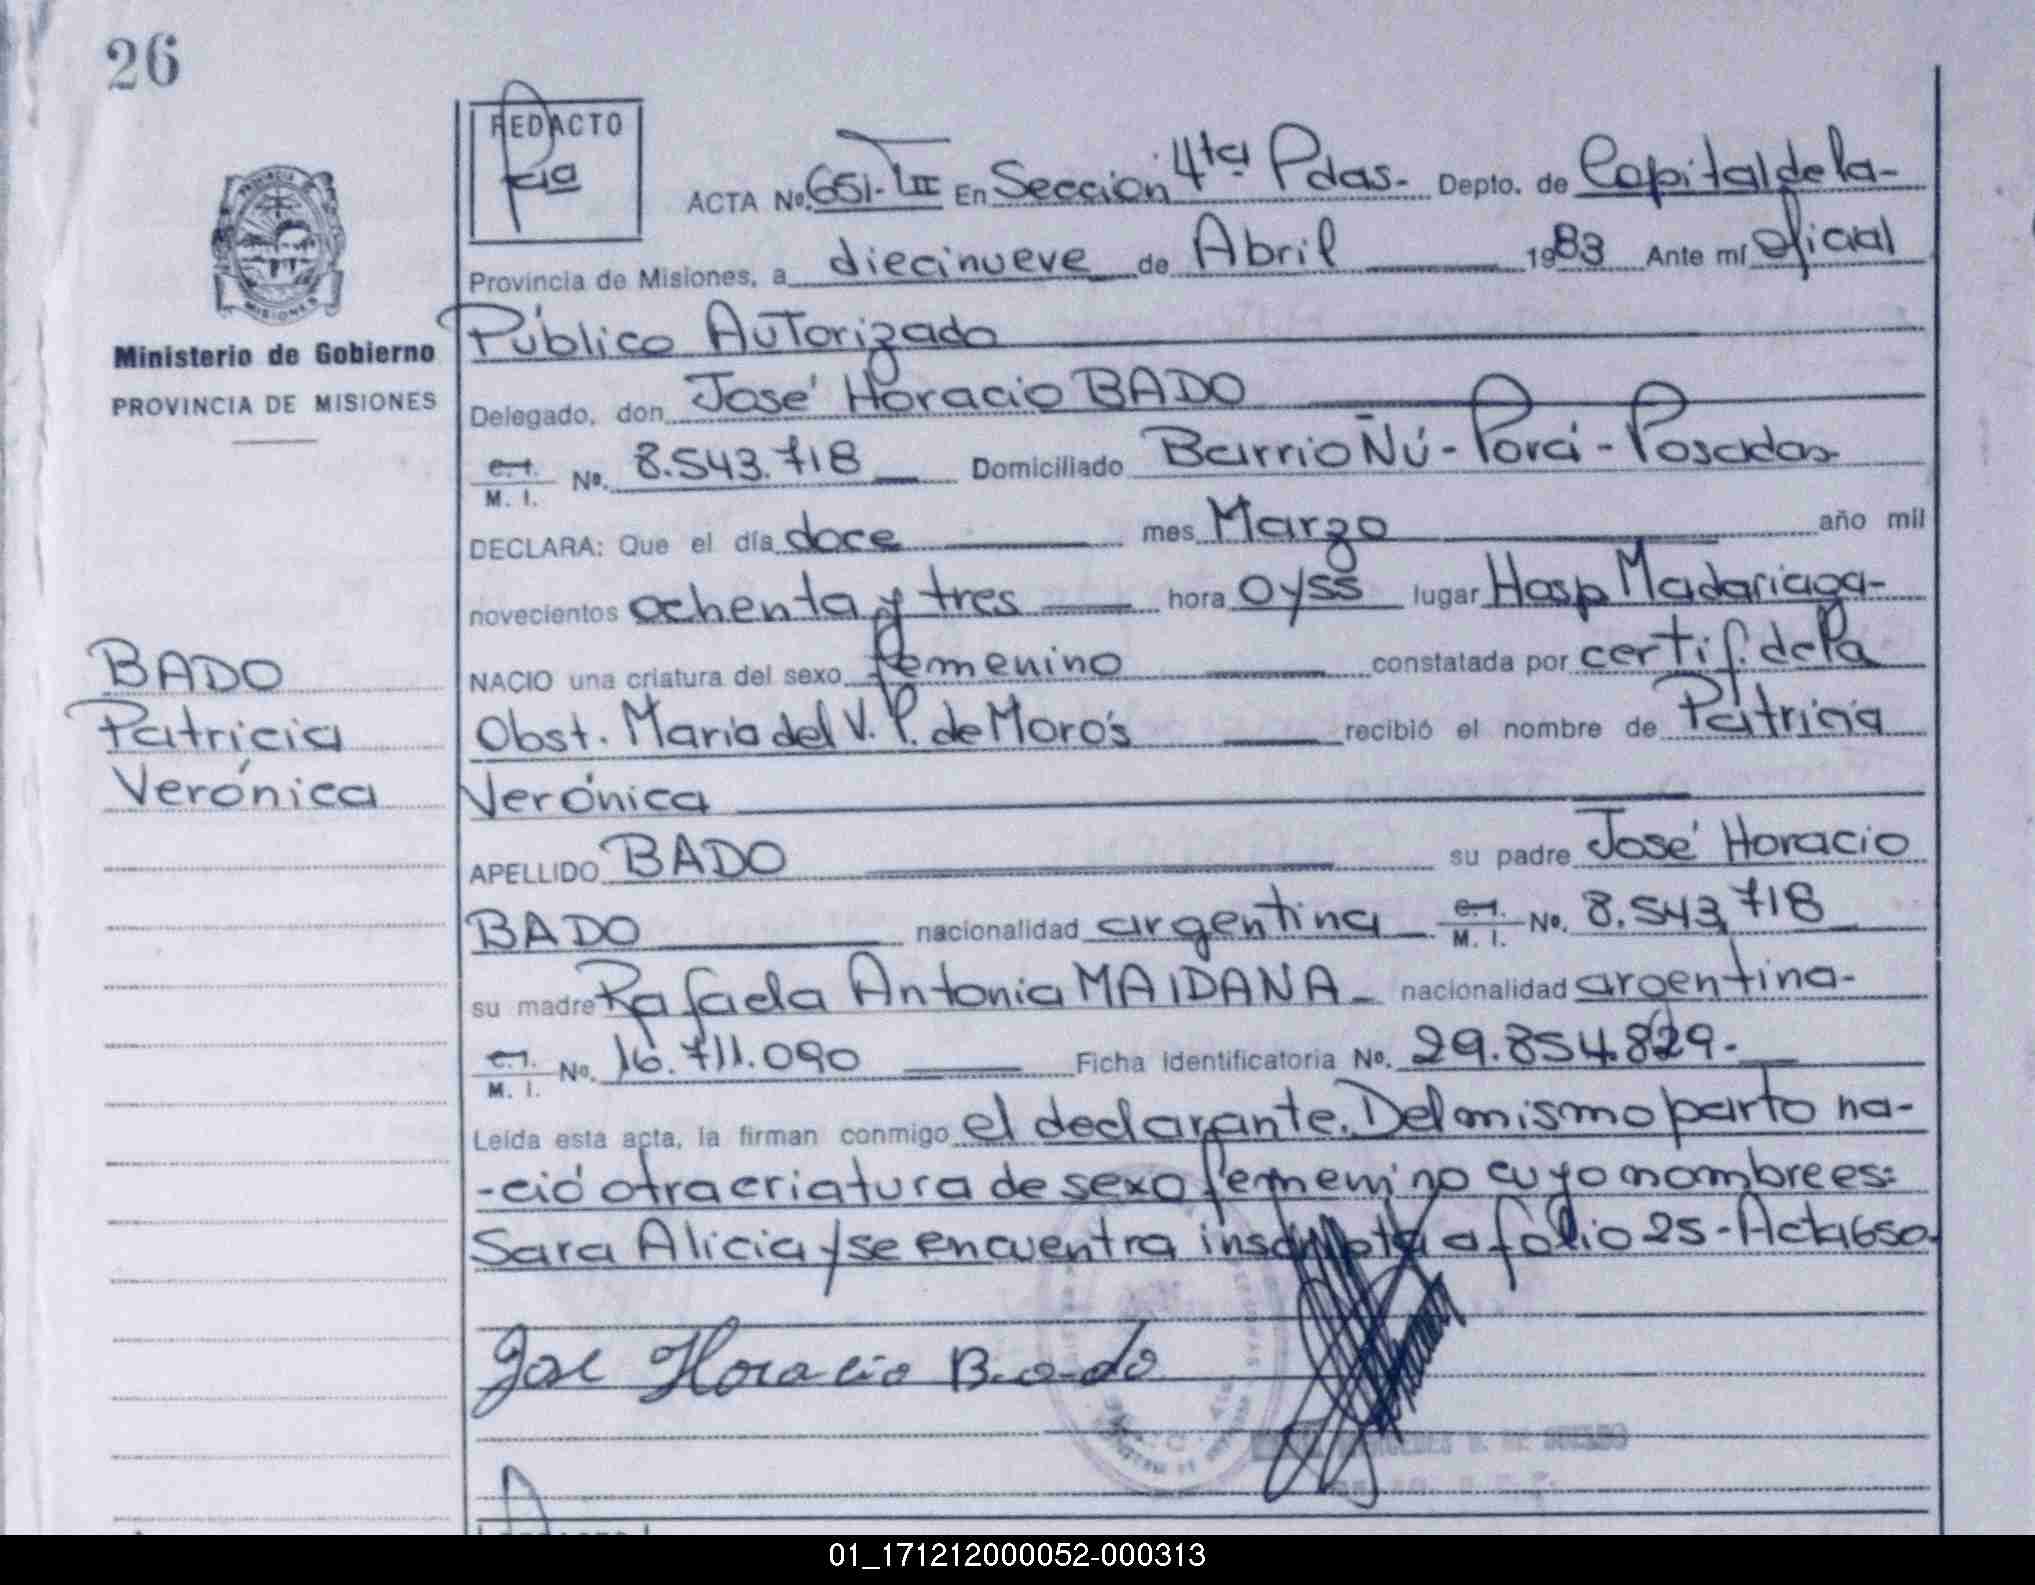 26
REDACTO
ACTA Nº. 651-TIII En Sección 4ta Pdas- Depto. de Capital de la-
Provincia de Misiones, a diecinueve de Abril 1983 Ante mí Oficial
Público Autorizado
Ministerio de Gobierno
PROVINCIA DE MISIONES
Delegado, don José Horacio BADO
C.I. M. I. Nº. 8.543.718 Domiciliado Barrio Ñú-Porá-Posadas
DECLARA: Que el día doce mes Marzo año mil
novecientos ochenta y tres hora 0y55 lugar Hosp Madariaga-
BADO
Patricia
Verónica
NACIO una criatura del sexo femenino constatada por certif. de la
Obst. María del V. P. de Moro's recibió el nombre de Patricia
Verónica
APELLIDO BADO su padre José Horacio
BADO nacionalidad argentina C.I. M. I. Nº. 8.543.718
su madre Rafaela Antonia MAIDANA nacionalidad argentina-
C.I. M. I. Nº. 16.711.090 Ficha identificatoria Nº. 29.854.829.-
Leída esta acta, la firman conmigo el declarante. Del mismo parto na-
-ció otra criatura de sexo femenino cuyo nombre es:
Sara Alicia y se encuentra inscripta a folio 25-Acta 650
José Horacio Bado
01_171212000052-000313